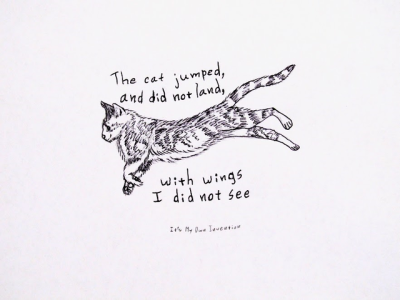 The cat jumped,
and did not land,
with wings
I did not see
It's My Own Invention